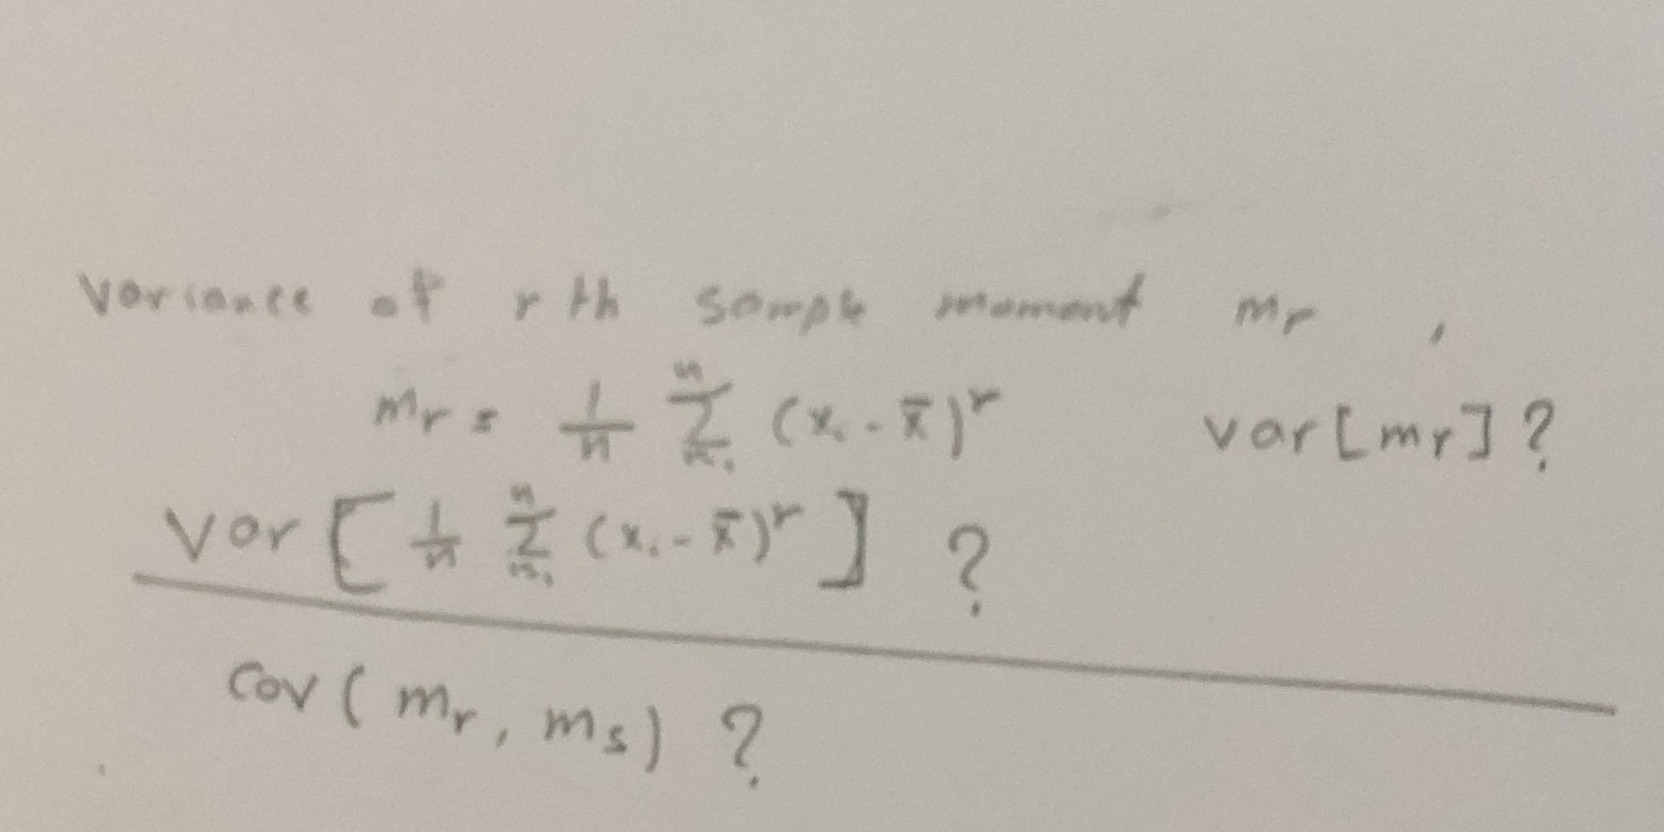 variance of r th sample moment mr ,
mr = 1/n Σ (xi - x̄)^r var[mr]?
var [ 1/n Σ (xi - x̄)^r ] ?
cov ( mr, ms ) ?